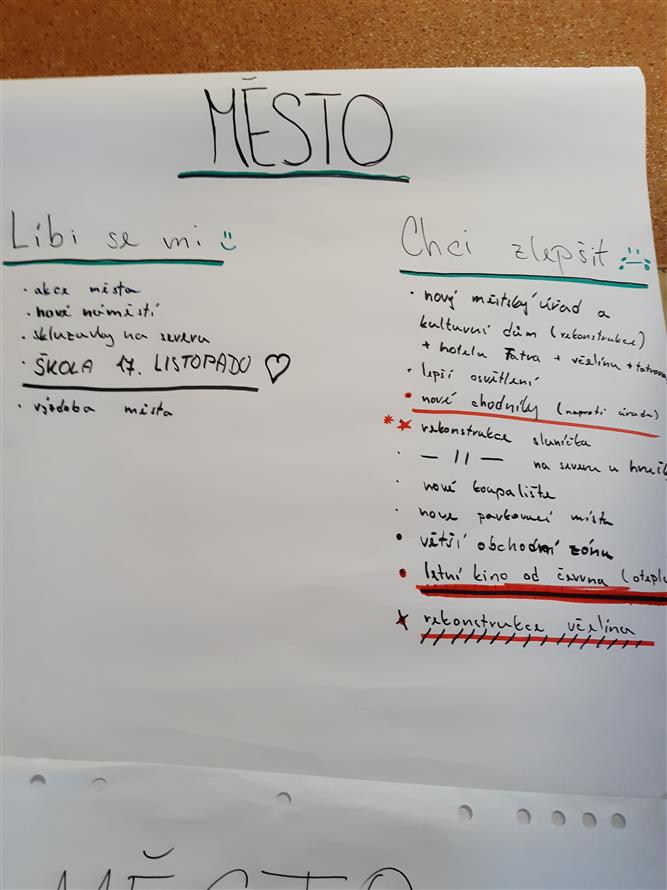 MĚSTO
Líbi se mi
• akce města
• nové náměstí
• skluzavky na severu
• ŠKOLA 17. LISTOPADO
• výzdoba města
Chci zlepšit
• nový městský úřad a
kulturní dům (rekonstrukce)
+ hotelu Tatra + včelínu +
• lepší osvětlení
• nové chodníky (naproti úřadu)
* rekonstrukce sluníčka
• — 11 — na severu u
• nové koupaliště
• nove parkovací místa
• větší obchodní zónu
• letní kino od června
x rekonstrukce včelína
MĚSTO